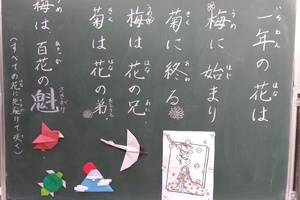 一年の花は
梅に始まり
菊に終る
梅は花の兄
菊は花の弟
梅は百花の魁
(すべての花に先駆けて咲く)